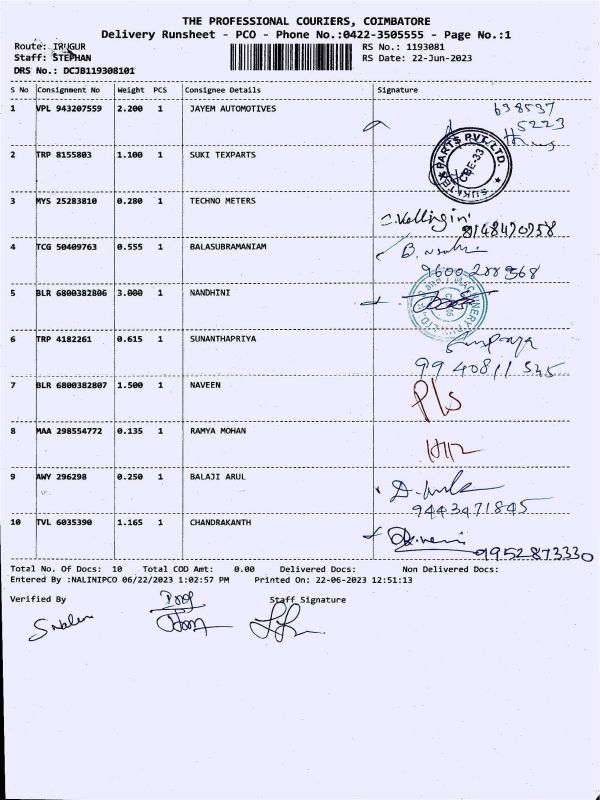 THE PROFESSIONAL COURIERS, COIMBATORE
Delivery Runsheet - PCO - Phone No.:0422-3505555 - Page No.:1
Route: IRUGUR RS No.: 1193081
Staff: STEPHAN RS Date: 22-Jun-2023
DRS No.: DCJB119308101
S No Consignment No Weight PCS Consignee Details Signature
1 VPL 943207559 2.200 1 JAYEM AUTOMOTIVES 638537
5223
2 TRP 8155803 1.100 1 SUKI TEXPARTS
PARTS PVT. LTD.
CBE-33
3 MYS 25283810 0.280 1 TECHNO METERS
8148470758
4 TCG 50409763 0.555 1 BALASUBRAMANIAM
9600288968
5 BLR 6800382806 3.000 1 NANDHINI
6 TRP 4182261 0.615 1 SUNANTHAPRIYA
9940811545
7 BLR 6800382807 1.500 1 NAVEEN P/S
8 MAA 298554772 0.135 1 RAMYA MOHAN
9 AWY 296298 0.250 1 BALAJI ARUL
9443471845
10 TVL 6035390 1.165 1 CHANDRAKANTH
9952873330
Total No. Of Docs: 10 Total COD Amt: 0.00 Delivered Docs: Non Delivered Docs:
Entered By :NALINIPCO 06/22/2023 1:02:57 PM Printed On: 22-06-2023 12:51:13
Verified By Staff Signature